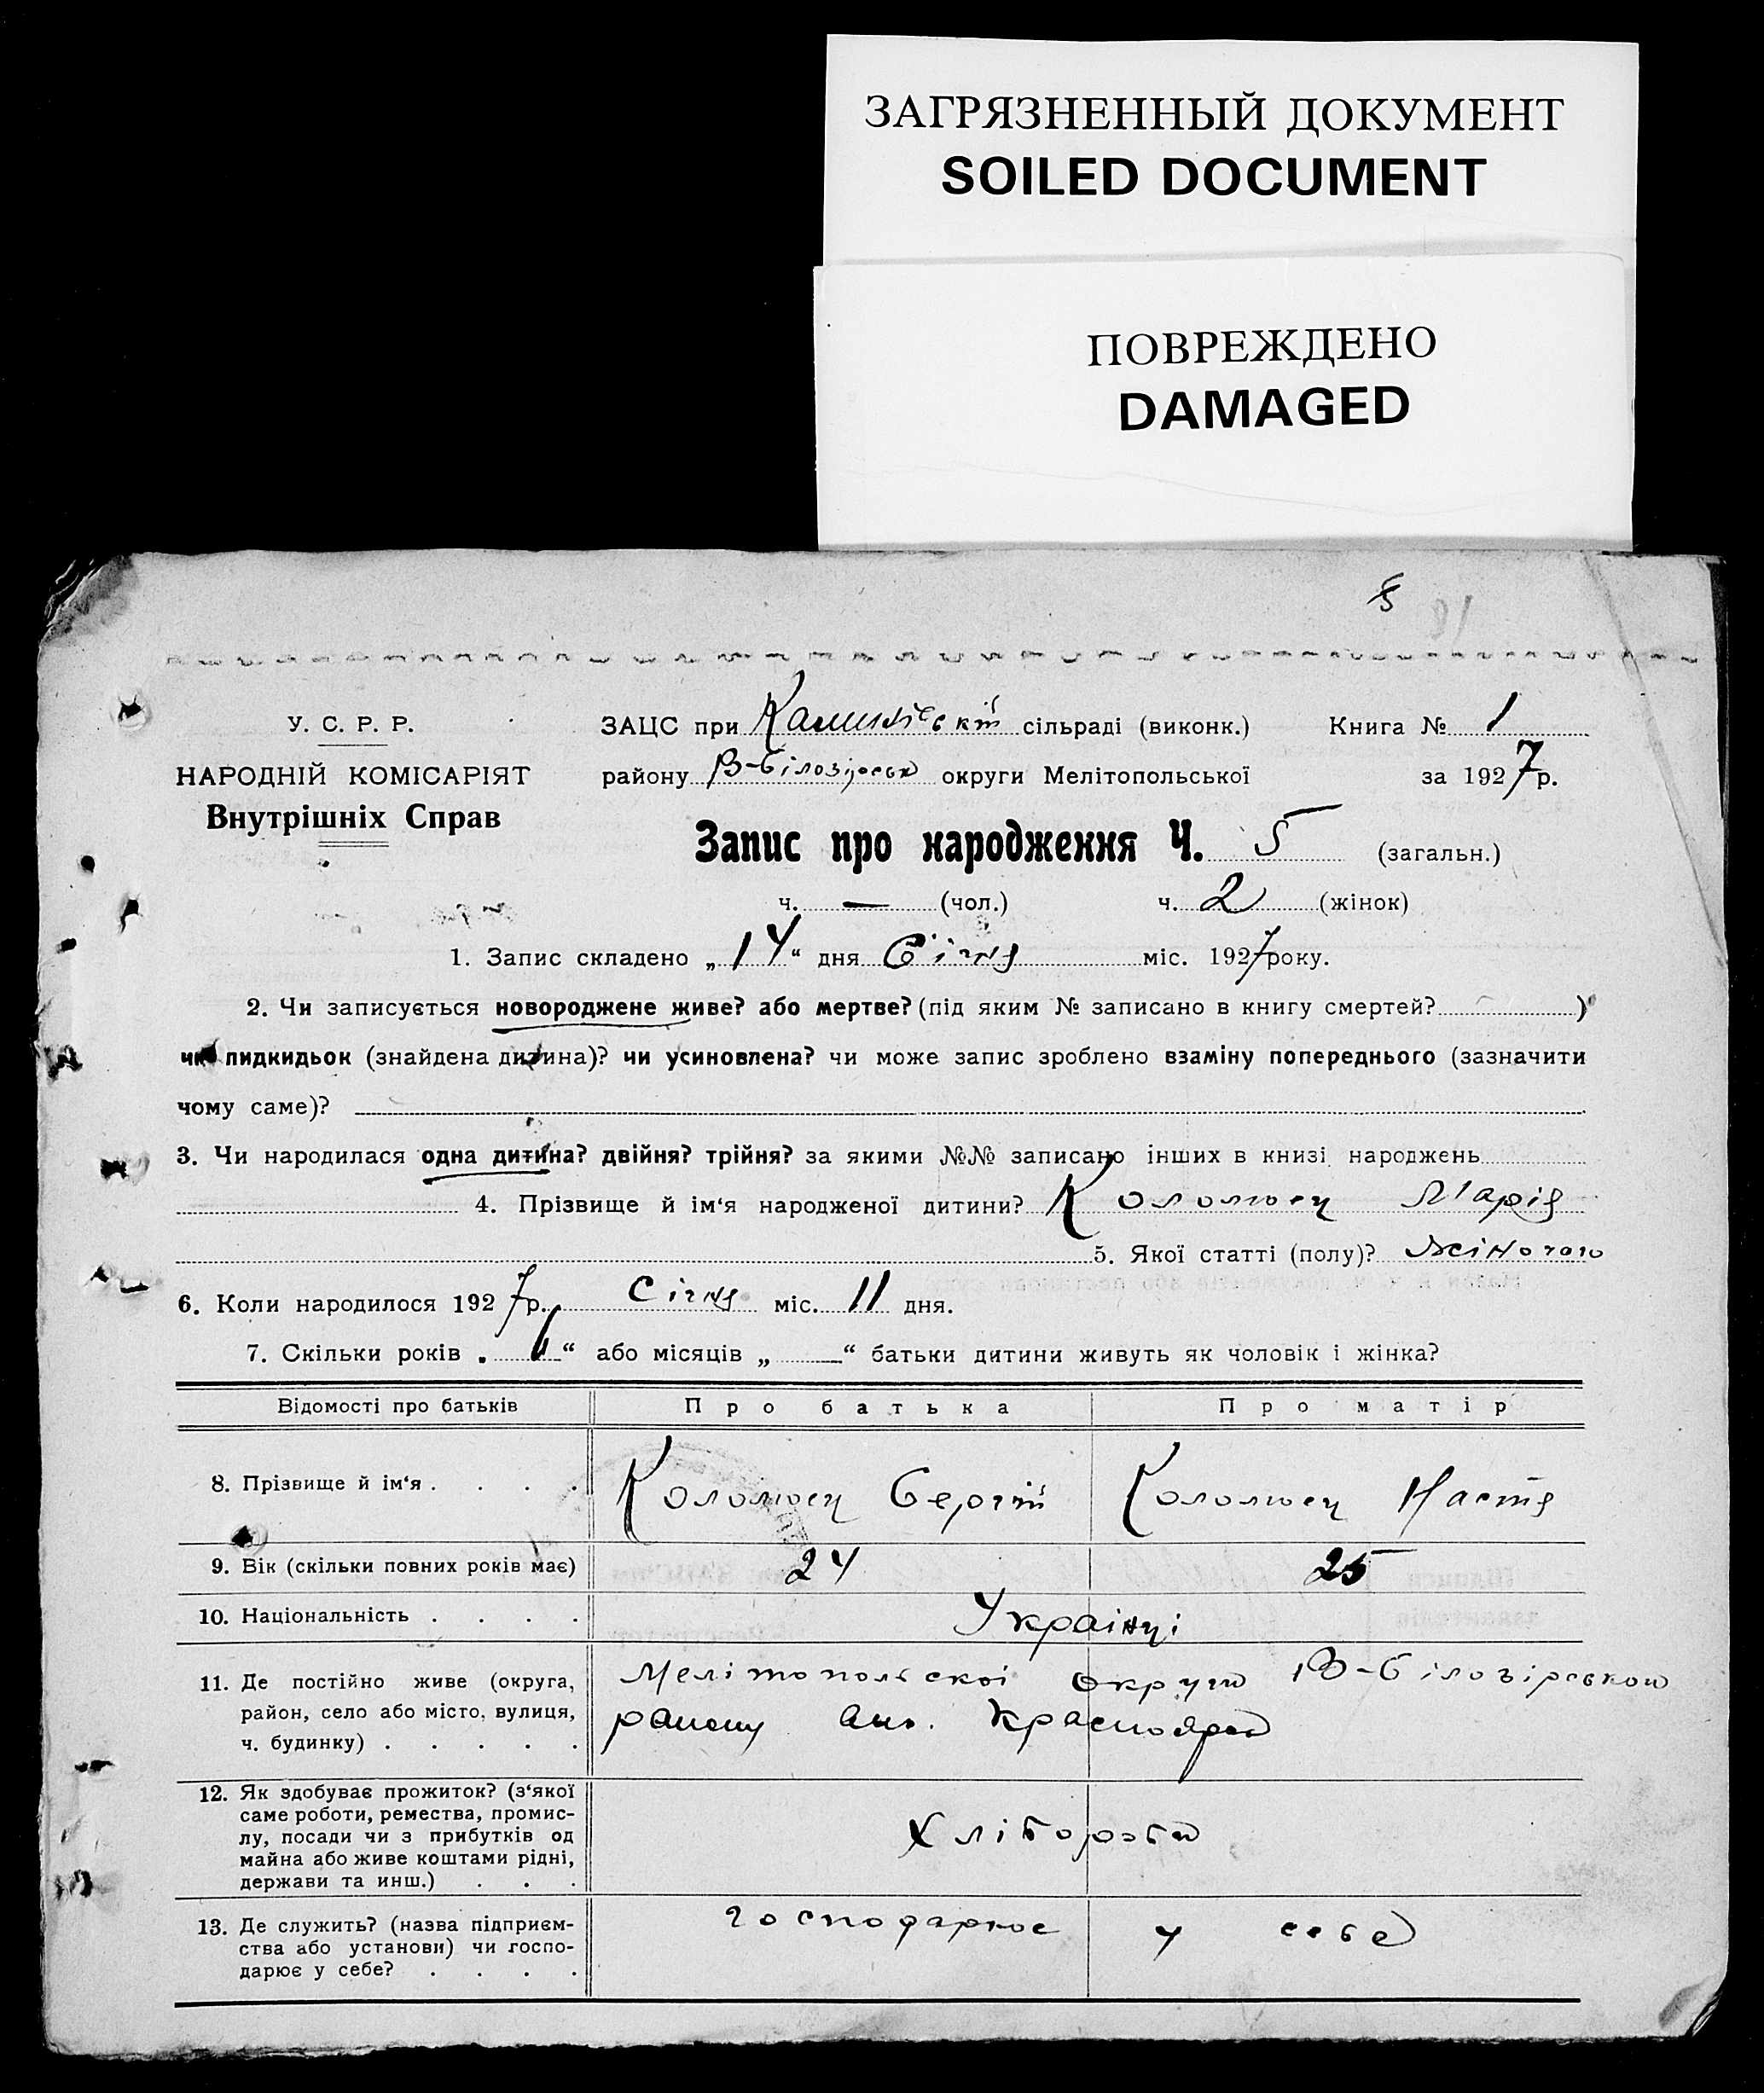 ЗАГРЯЗНЕННЫЙ ДОКУМЕНТ
SOILED DOCUMENT
ПОВРЕЖДЕНО
DAMAGED
5
У. С. Р. Р.
НАРОДНІЙ КОМІСАРІЯТ
Внутрішніх Справ
ЗАЦС при сільраді (виконк.) Книга № 1
району В-Білозірськ округи Мелітопольської за 1927 р.
Запис про народження Ч. 5 (загальн.)
ч. — (чол.) ч. 2 (жінок)
1. Запис складено „14“ дня Січня міс. 1927 року.
2. Чи записується новороджене живе? або мертве? (під яким № записано в книгу смертей? )
чи пидкидьок (знайдена дитина)? чи усиновлена? чи може запис зроблено взаміну попереднього (зазначити
чому саме)?
3. Чи народилася одна дитина? двійня? трійня? за якими №№ записано інших в книзі народжень
4. Прізвище й ім‘я народженої дитини? Коломоец Марія
5. Якої статті (полу)? жіночого
6. Коли народилося 1927 р. Січня міс. 11 дня.
7. Скільки років „ “ або місяців „ “ батьки дитини живуть як чоловік і жінка?
Відомості про батьків Про батька Про матір
8. Прізвище й ім‘я . . . . Коломоец Сергій Коломоец Настя
9. Вік (скільки повних років має) 24 25
10. Національність . . . . Українці
11. Де постійно живе (округа, район, село або місто, вулиця, ч. будинку) . . . . .
Мелітопольскоі округи В-Білозірського
району
12. Як здобуває прожиток? (з‘якої
саме роботи, ремества, промис-
лу, посади чи з прибутків од
майна або живе коштами рідні,
держави та инш.) . . .
Хлібороби
13. Де служить? (назва підприєм-
ства або установи) чи госпо-
дарює у себе? . . . .
господарює у себе